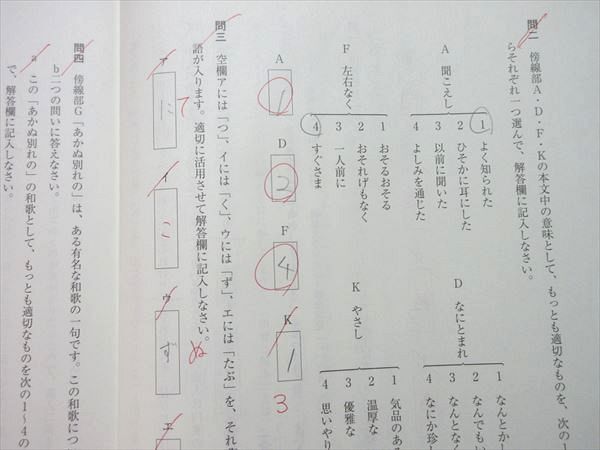 問二　傍線部A・D・F・Kの本文中の意味として、もっとも適切なものを、次の1
らそれぞれ一つ選んで、解答欄に記入しなさい。
A　聞こえし
1　よく知られた
2　ひそかに耳にした
3　以前に聞いた
4　よしみを通じた
D　なにとまれ
1　なんとかし
2　なんでもい
3　なんとなく
4　なにか珍し
F　左右なく
1　おそるおそる
2　おそれげもなく
3　一人前に
4　すぐさま
K　やさし
1　気品のある
2　温厚な
3　優雅な
4　思いやり
A　1
D　2
F　4
K　1
3
問三　空欄アには「つ」、イには「く」、ウには「ず」、エには「たぶ」を、それ
語が入ります。適切に活用させて解答欄に記入しなさい。
ア　に
て
イ　こ
ウ　ず
ぬ
エ
問四　傍線部G「あかぬ別れの」は、ある有名な和歌の一句です。この和歌につ
b二つの問いに答えなさい。
a　この「あかぬ別れの」の和歌として、もっとも適切なものを次の1〜4の
で、解答欄に記入しなさい。